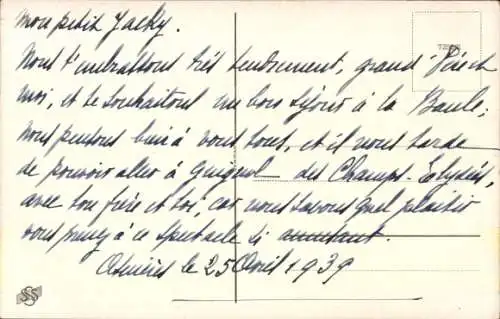 Mon petit Jacky.
Nous t'embrassons très tendrement, grand'Père et
moi, et te souhaitons un bon séjour à la Baule ;
nous pensons bien à vous tous, et il nous tarde
de pouvoir aller à Guignol des Champs-Elysées,
avec ton frère et toi, car nous savons quel plaisir
vous prenez à ce spectacle si amusant.
Asnières le 25 Avril 1939